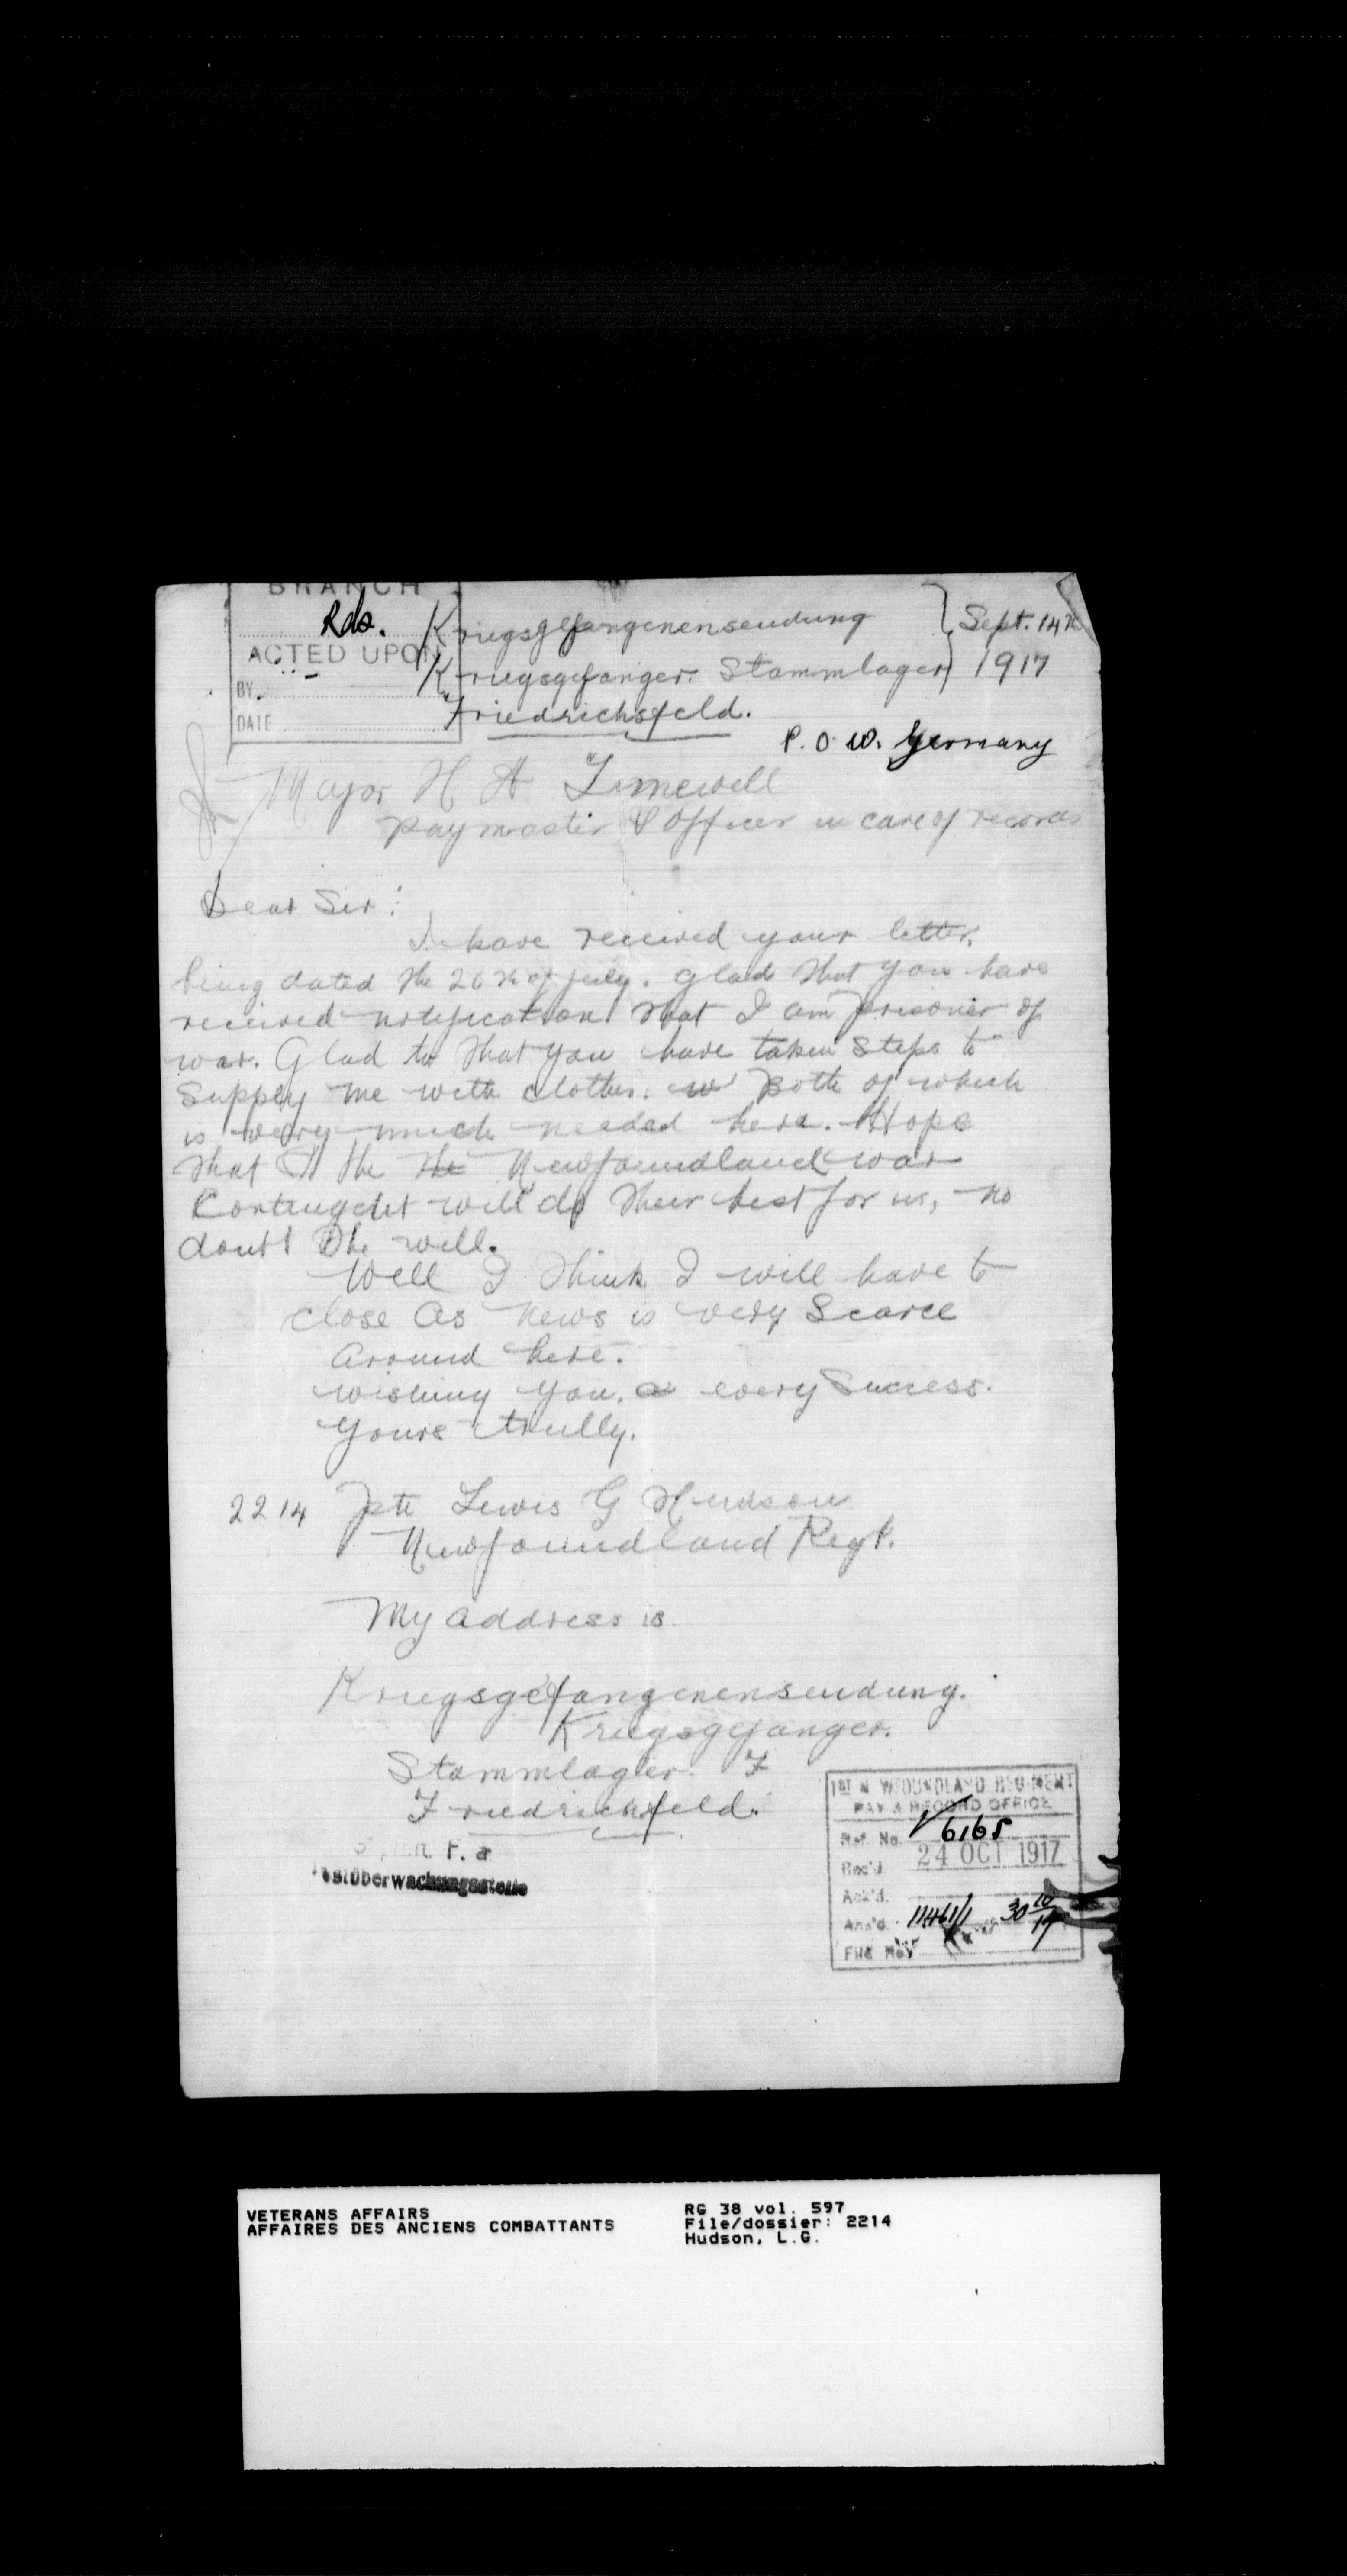 BRANCH
Rds.
ACTED UPON
BY
DATE
Kriegsgefangenensendung
Sept. 14th
Kriegsgefanger. Stammlager
1917
Friedrichsfeld.
P. O. W. Germany
Major H A Timewell
Paymaster & Officer in care of records
Dear Sir:
I have received your letter.
being dated the 26th of July. Glad that you have
received notification that I am prisoner of
war. Glad to that you have taken steps to
Supply me with clothes. Both of which
is very much needed here. Hope
that the the Newfoundland war
Contingent will do their best for us, no
doubt the will.
Well I think I will have to
close As news is very Scarce
Around here.
wishing you. a every Success.
Yours trully.
2214 Pte Lewis G Hudson
Newfoundland Regt.
My address is
Kriegsgefangenensendung.
Kriegsgefanger.
Stammlager. F
Friedrichsfeld.
F. a
Postüberwachungsstelle
1ST NEWFOUNDLAND REGIMENT
PAY & RECORD OFFICE
Ref. No. 6165
Rec'd. 24 OCT 1917
Ack'd.
Ans'd. 11461/1 30 10/17
VETERANS AFFAIRS
AFFAIRES DES ANCIENS COMBATTANTS
RG 38 vol. 597
File/dossier: 2214
Hudson, L.G.